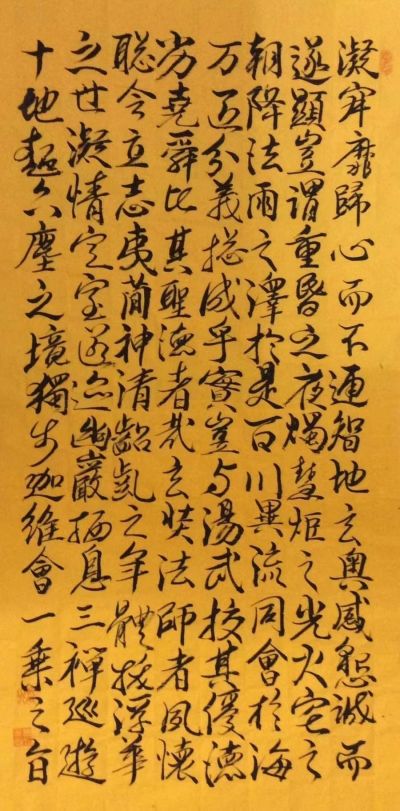 凝寂靡歸心而不通智地玄奧感懇誠而
遂顯豈謂重昏之夜燭慧炬之光火宅之
朝降法雨之澤於是百川異流同會於海
万區分義揔成乎實豈与湯武挍其優德
劣堯舜比其聖德者哉玄奘法師者夙懷
聡令立志夷簡神清齠齔之年體拔浮華
之世凝情定室匿迹幽巖栖息三禪巡遊
十地超六塵之境獨步迦維會一乘之旨